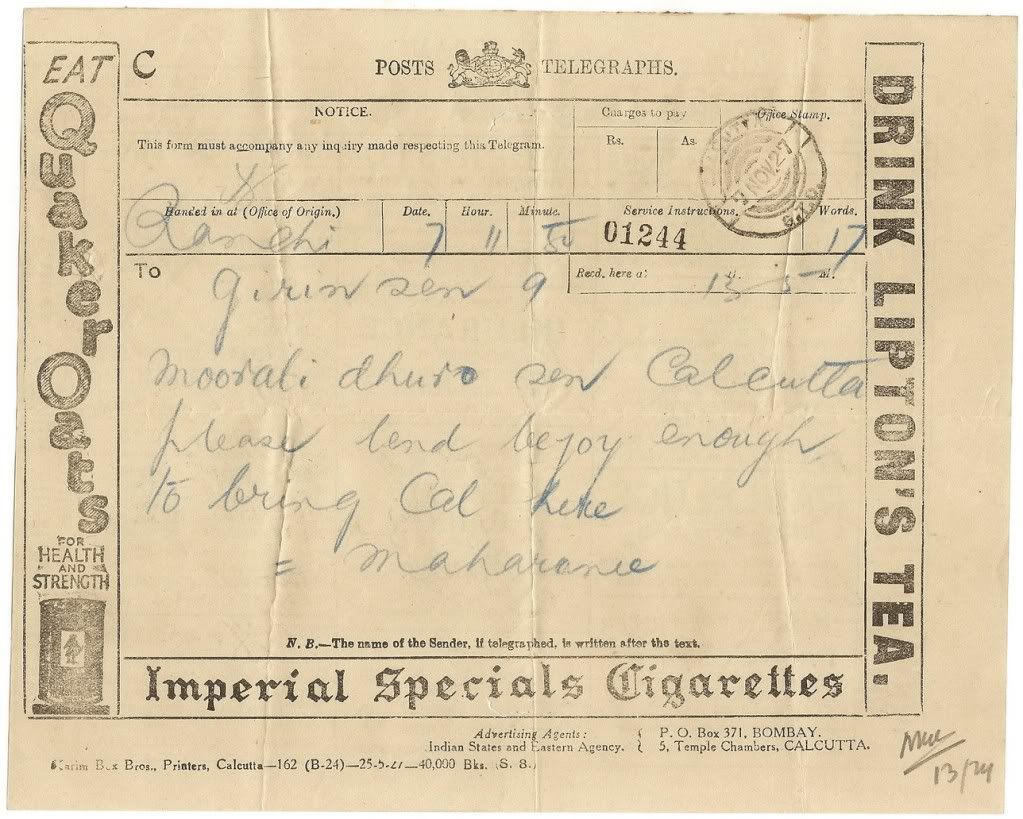 EAT
Quaker
Oats
FOR
HEALTH
AND
STRENGTH
C
POSTS TELEGRAPHS.
NOTICE.
This form must accompany any inquiry made respecting this Telegram.
Charges to pay
Rs. As.
Office Stamp.
7 NOV 27
Handed in at (Office of Origin.) Date. Hour. Minute. Service Instructions. Words.
Ranchi 7 11 50 01244 17
To
Recd. here at H. M.
13 5
Girin sen 9
Moorali dhuro sen Calcutta
please lend bejoy enough
to bring Cal here
= Maharanee
N. B.—The name of the Sender, if telegraphed, is written after the text.
Imperial Specials Cigarettes
DRINK LIPTON'S TEA.
Advertising Agents:
Indian States and Eastern Agency.
P. O. Box 371, BOMBAY.
5, Temple Chambers, CALCUTTA.
Karim Bux Bros., Printers, Calcutta—162 (B-24)—25-5-27—40,000 Bks. (S. S.)